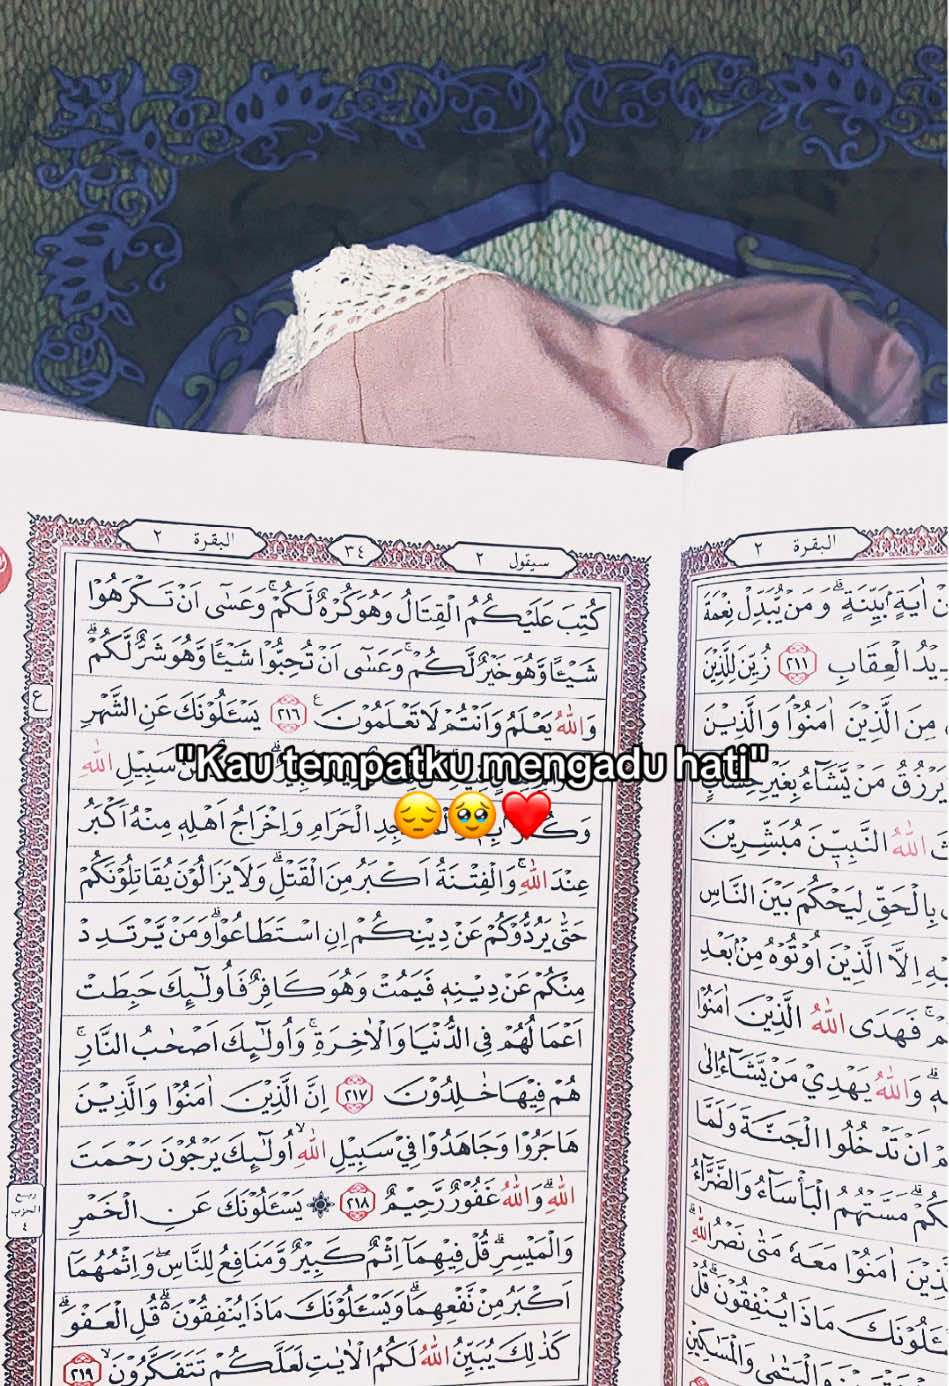 البقرة ٢
٣٤
سيقول ٢
كُتِبَ عَلَيْكُمُ الْقِتَالُ وَهُوَ كُرْهٌ لَّكُمْ ۚ وَعَسٰٓى اَنْ تَكْرَهُوْا
شَيْـًٔا وَّهُوَ خَيْرٌ لَّكُمْ ۚ وَعَسٰٓى اَنْ تُحِبُّوْا شَيْـًٔا وَّهُوَ شَرٌّ لَّكُمْ ۗ
وَاللّٰهُ يَعْلَمُ وَاَنْتُمْ لَا تَعْلَمُوْنَ ࣖ ٢١٦ يَسْـَٔلُوْنَكَ عَنِ الشَّهْرِ
سَبِيْلِ اللّٰهِ
"Kau tempatku mengadu hati"
😔🥹❤️
الْحَرَامِ وَاِخْرَاجُ اَهْلِهٖ مِنْهُ اَكْبَرُ
عِنْدَ اللّٰهِ ۚ وَالْفِتْنَةُ اَكْبَرُ مِنَ الْقَتْلِ ۗ وَلَا يَزَالُوْنَ يُقَاتِلُوْنَكُمْ
حَتّٰى يَرُدُّوْكُمْ عَنْ دِيْنِكُمْ اِنِ اسْتَطَاعُوْا ۗ وَمَنْ يَّرْتَدِدْ
مِنْكُمْ عَنْ دِيْنِهٖ فَيَمُتْ وَهُوَ كَافِرٌ فَاُولٰۤىِٕكَ حَبِطَتْ
اَعْمَالُهُمْ فِى الدُّنْيَا وَالْاٰخِرَةِ ۚ وَاُولٰۤىِٕكَ اَصْحٰبُ النَّارِ ۚ
هُمْ فِيْهَا خٰلِدُوْنَ ٢١٧ اِنَّ الَّذِيْنَ اٰمَنُوْا وَالَّذِيْنَ
هَاجَرُوْا وَجَاهَدُوْا فِيْ سَبِيْلِ اللّٰهِ ۙ اُولٰۤىِٕكَ يَرْجُوْنَ رَحْمَتَ
اللّٰهِ ۗ وَاللّٰهُ غَفُوْرٌ رَّحِيْمٌ ٢١٨ ۞ يَسْـَٔلُوْنَكَ عَنِ الْخَمْرِ
وَالْمَيْسِرِ ۗ قُلْ فِيْهِمَآ اِثْمٌ كَبِيْرٌ وَّمَنَافِعُ لِلنَّاسِ ۖ وَاِثْمُهُمَآ
اَكْبَرُ مِنْ نَّفْعِهِمَا ۗ وَيَسْـَٔلُوْنَكَ مَاذَا يُنْفِقُوْنَ ەۗ قُلِ الْعَفْوَ ۗ
كَذٰلِكَ يُبَيِّنُ اللّٰهُ لَكُمُ الْاٰيٰتِ لَعَلَّكُمْ تَتَفَكَّرُوْنَ ۙ ٢١٩
ع
ربع
الحزب
٤
البقرة ٢
اٰيَةٍ ۢ بَيِّنَةٍ ۗ وَمَنْ يُّبَدِّلْ نِعْمَةَ
الْعِقَابِ ٢١١ زُيِّنَ لِلَّذِيْنَ
مِنَ الَّذِيْنَ اٰمَنُوْا ۘ وَالَّذِيْنَ
يَرْزُقُ مَنْ يَّشَاۤءُ بِغَيْرِ حِسَابٍ
اللّٰهُ النَّبِيّٖنَ مُبَشِّرِيْنَ
بِالْحَقِّ لِيَحْكُمَ بَيْنَ النَّاسِ
اِلَّا الَّذِيْنَ اُوْتُوْهُ مِنْۢ بَعْدِ
فَهَدَى اللّٰهُ الَّذِيْنَ اٰمَنُوْا
وَاللّٰهُ يَهْدِيْ مَنْ يَّشَاۤءُ اِلٰى
اَنْ تَدْخُلُوا الْجَنَّةَ وَلَمَّا
مَسَّتْهُمُ الْبَأْسَاۤءُ وَالضَّرَّاۤءُ
اٰمَنُوْا مَعَهٗ مَتٰى نَصْرُ اللّٰهِ
مَاذَا يُنْفِقُوْنَ ۗ قُلْ
وَالْيَتٰمٰى وَالْمَسٰكِيْنِ